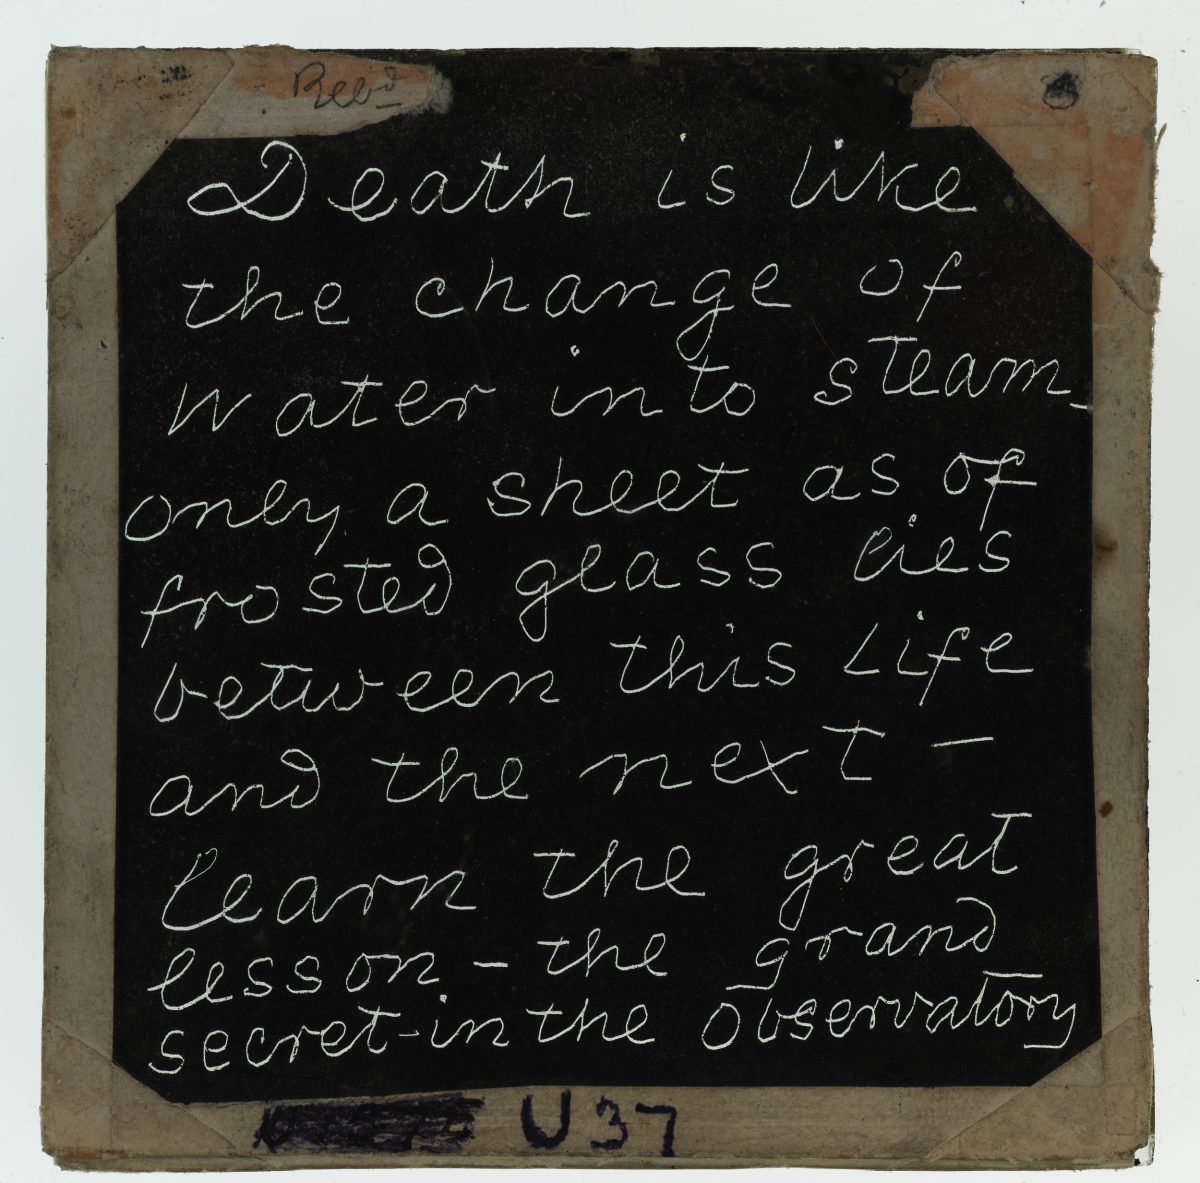 Rec'd
Death is like
the change of
water into steam_
only a sheet as of
frosted glass lies
between this life
and the next —
learn the great
lesson — the grand
secret-in the observatory
U37